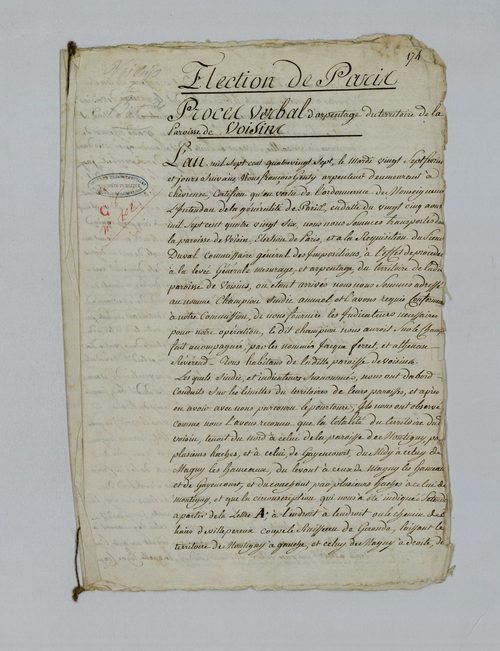 174
Election de Paris
Procès verbal d'arpentage du territoire de la
Paroisse de Voisins
L'an mil sept cent quatre vingt sept, le Mardi vingt sept fevrier
et jours suivans Nous françois Genty arpenteur demeurant à
chevreuse, Certifions qu'en vertu de l'ordonnance de Monseigneur
L'Intendant de la généralité de Paris, en datte du vingt cinq aoust
mil sept cent quatre vingt six, nous nous sommes transportés dans
la paroisse de Voisin, Election de Paris, et a la Requisition du Sieur
Duval Commissaire général des Impositions, à l'effet de proceder
à la levée Générale mesurage, et arpentage, du territoire de ladite
paroisse de Voisins, ou etant arrivés nous nous sommes adressé
au nommé Champion sindic annuel et l'avons requis Conformement
à notre Commission, de nous fournir les Indicateurs necessaires
pour notre opération, le dit champion nous auroit sur le champ
fait accompagner, par les nommés Jacque ferret, et
Révérend Tous habitans de laditte paroisse de Voisins
Lesquels Sindic, et indicateurs Susnommés, nous ont d'abord
Conduits sur les limittes du territoire de leur paroisse, et après
en avoir avec nous parcouru le pourtour, Ils nous ont observé
comme nous l'avons reconnu que la totalité du territoire de
voisin, tenoit du Nord à celui de la paroisse de Montigny, par
plusieurs haches, et à celui de Guyencourt, du Midy à celuy de
Magny les hameaux, du levant à ceux de Magny les hameaux
et de Guyencourt, et du couchant par plusieurs haches à celui de
Montigny, et que la circonscription qui nous a été indiquée
a partir de la Lettre A à l'endroit ou le chemin de
coupe le Ruisseau de laissant le
territoire de Montigny à gauche, et celuy de Magny à droite, de